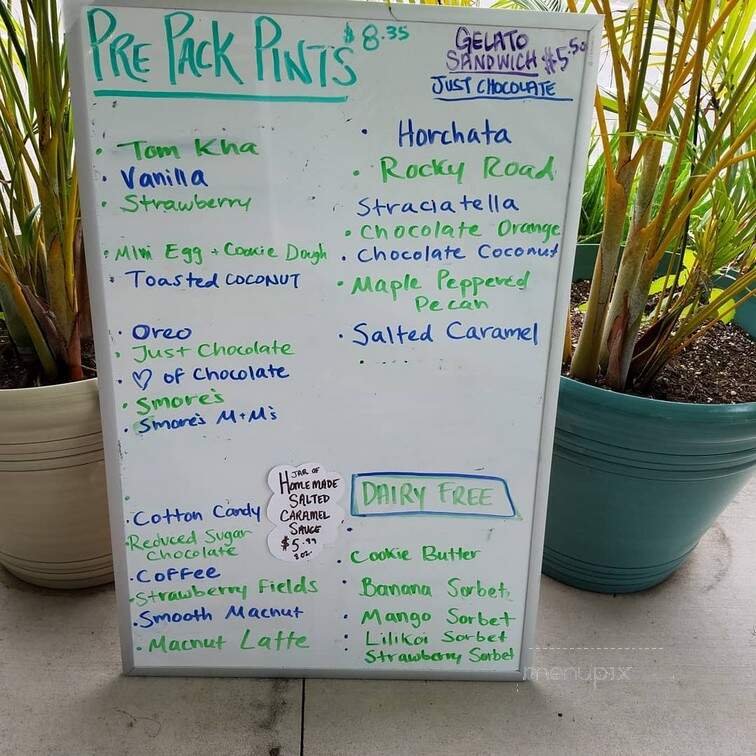 PRE PACK PINTS $8.35
GELATO
SANDWICH $5.50
JUST CHOCOLATE
• Tom Kha
• Vanilla
• Strawberry
• Mini Egg + Cookie Dough
• Toasted COCONUT
• Oreo
• Just Chocolate
• ♡ of Chocolate
• Smore's
• Smore's M+M's
• Cotton Candy
• Reduced Sugar
Chocolate
• Coffee
• Strawberry Fields
• Smooth Macnut
• Macnut Latte
• Horchata
• Rocky Road
Straciatella
• Chocolate Orange
• Chocolate Coconut
• Maple Peppered
Pecan
• Salted Caramel
JAR OF
HOMEMADE
SALTED
CARAMEL
SAUCE
$5.99
8 oz.
DAIRY FREE
• Cookie Butter
• Banana Sorbet
• Mango Sorbet
• Lilikoi Sorbet
Strawberry Sorbet
menupix